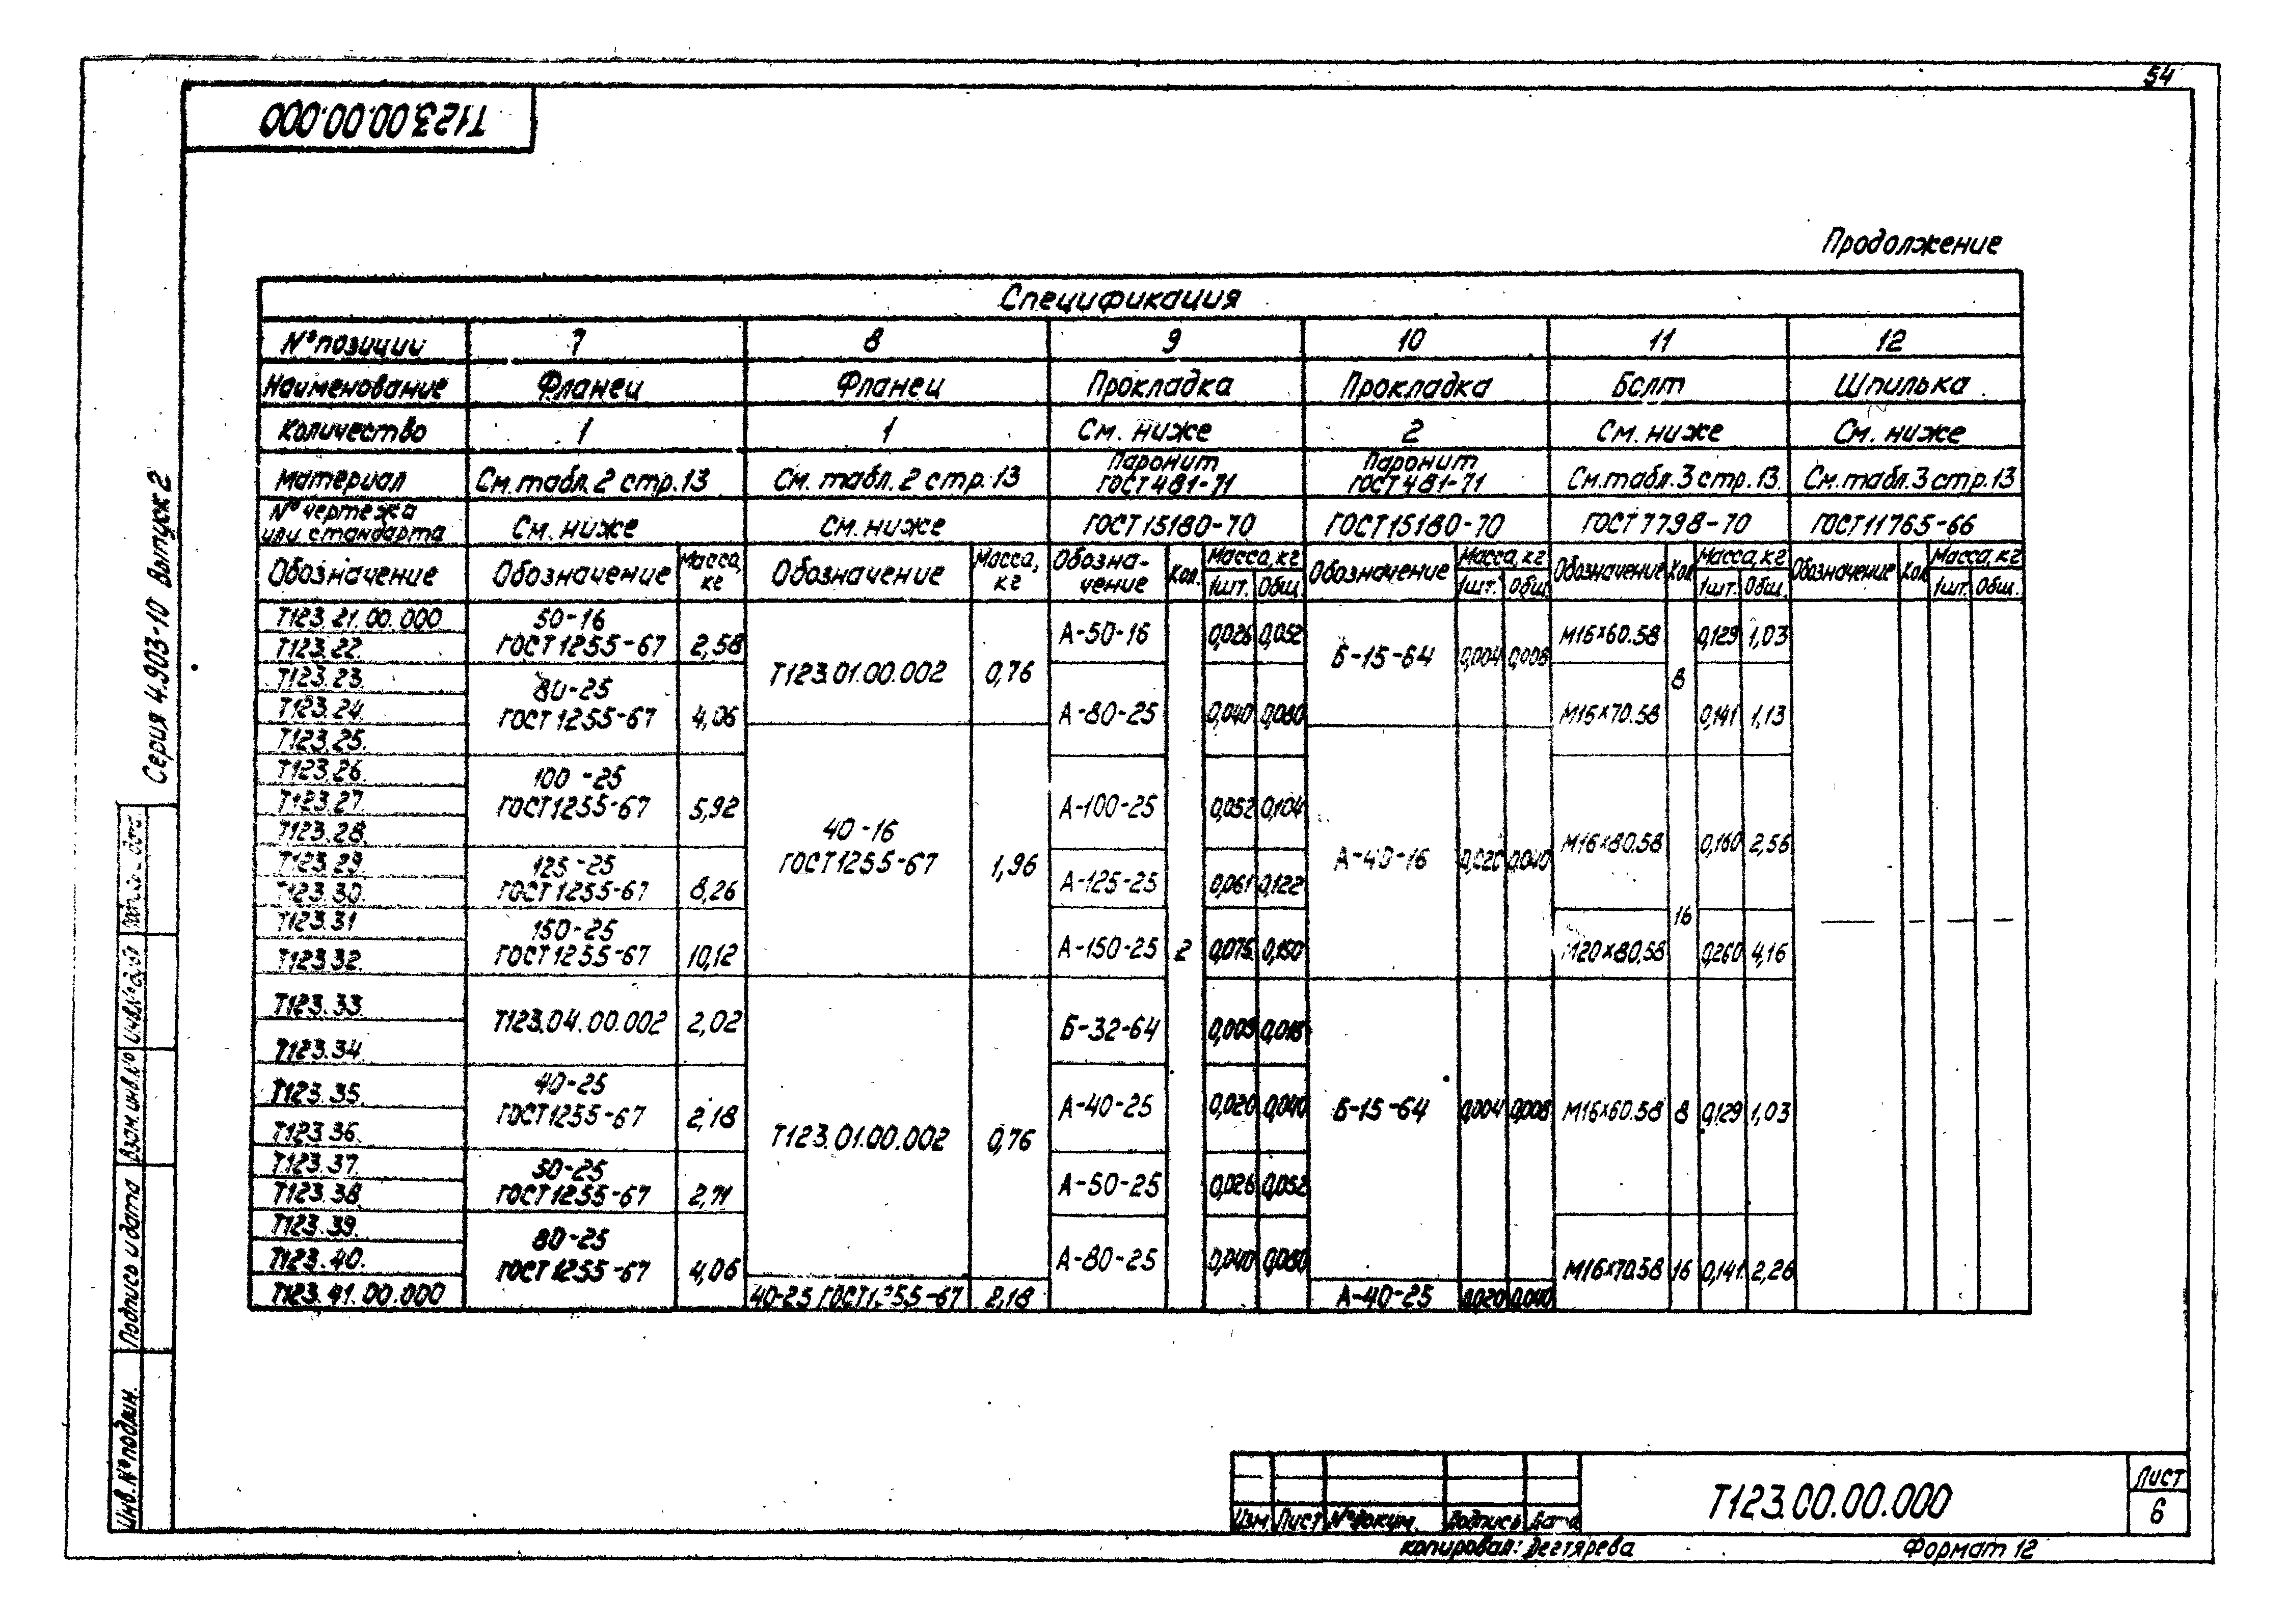 54
Т123.00.00.000
Продолжение
Спецификация
№ позиции 7 8 9 10 11 12
Наименование Фланец Фланец Прокладка Прокладка Болт Шпилька
Количество 1 1 См. ниже 2 См. ниже См. ниже
Материал См. табл. 2 стр. 13 См. табл. 2 стр. 13 Паронит ГОСТ 481-71 Паронит ГОСТ 481-71 См. табл. 3 стр. 13 См. табл. 3 стр. 13
№ чертежа или стандарта См. ниже См. ниже ГОСТ 15180-70 ГОСТ 15180-70 ГОСТ 7798-70 ГОСТ 11765-66
Обозначение Обозначение Масса, кг Обозначение Масса, кг Обозна-чение Кол. Масса, кг 1шт. Общ. Обозначение Масса, кг 1шт. Общ. Обозначение Кол. Масса, кг 1шт. Общ. Обозначение Кол. Масса, кг 1шт. Общ.
Т123.21.00.000 50-16 ГОСТ 1255-67 2,58 Т123.01.00.002 0,76 А-50-16 0,026 0,052 Б-15-64 0,004 0,008 М16×60.58 8 0,129 1,03
Т123.22.
Т123.23. 80-25 ГОСТ 1255-67 4,06 А-80-25 0,040 0,080 М16×70.58 0,141 1,13
Т123.24.
Т123.25. 40-16 ГОСТ 1255-67 1,96 А-40-16 0,020 0,040
Т123.26. 100-25 ГОСТ 1255-67 5,92 А-100-25 0,052 0,104 М16×80.58 16 0,160 2,56
Т123.27.
Т123.28.
Т123.29 125-25 ГОСТ 1255-67 8,26 А-125-25 0,061 0,122
Т123.30.
Т123.31 150-25 ГОСТ 1255-67 10,12 А-150-25 2 0,075 0,150 М20×80.58 0,260 4,16 — — — —
Т123.32.
Т123.33. Т123.04.00.002 2,02 Т123.01.00.002 0,76 Б-32-64 0,009 0,018 Б-15-64 0,004 0,008 М16×60.58 8 0,129 1,03
Т123.34.
Т123.35. 40-25 ГОСТ 1255-67 2,18 А-40-25 0,020 0,040
Т123.36.
Т123.37. 50-25 ГОСТ 1255-67 2,71 А-50-25 0,026 0,052
Т123.38.
Т123.39. 80-25 ГОСТ 1255-67 4,06 А-80-25 0,040 0,080 М16×70.58 16 0,141 2,26
Т123.40.
Т123.41.00.000 40-25 ГОСТ 1255-67 2,18 А-40-25 0,020 0,040
Серия 4.903-10 Выпуск 2
Инв.№подлин. Подпись и дата Взам.инв.№ Инв.№дубл.
Изм. Лист № докум. Подпись Дата
Т123.00.00.000
Лист
6
Копировал: Дегтярева
Формат 12